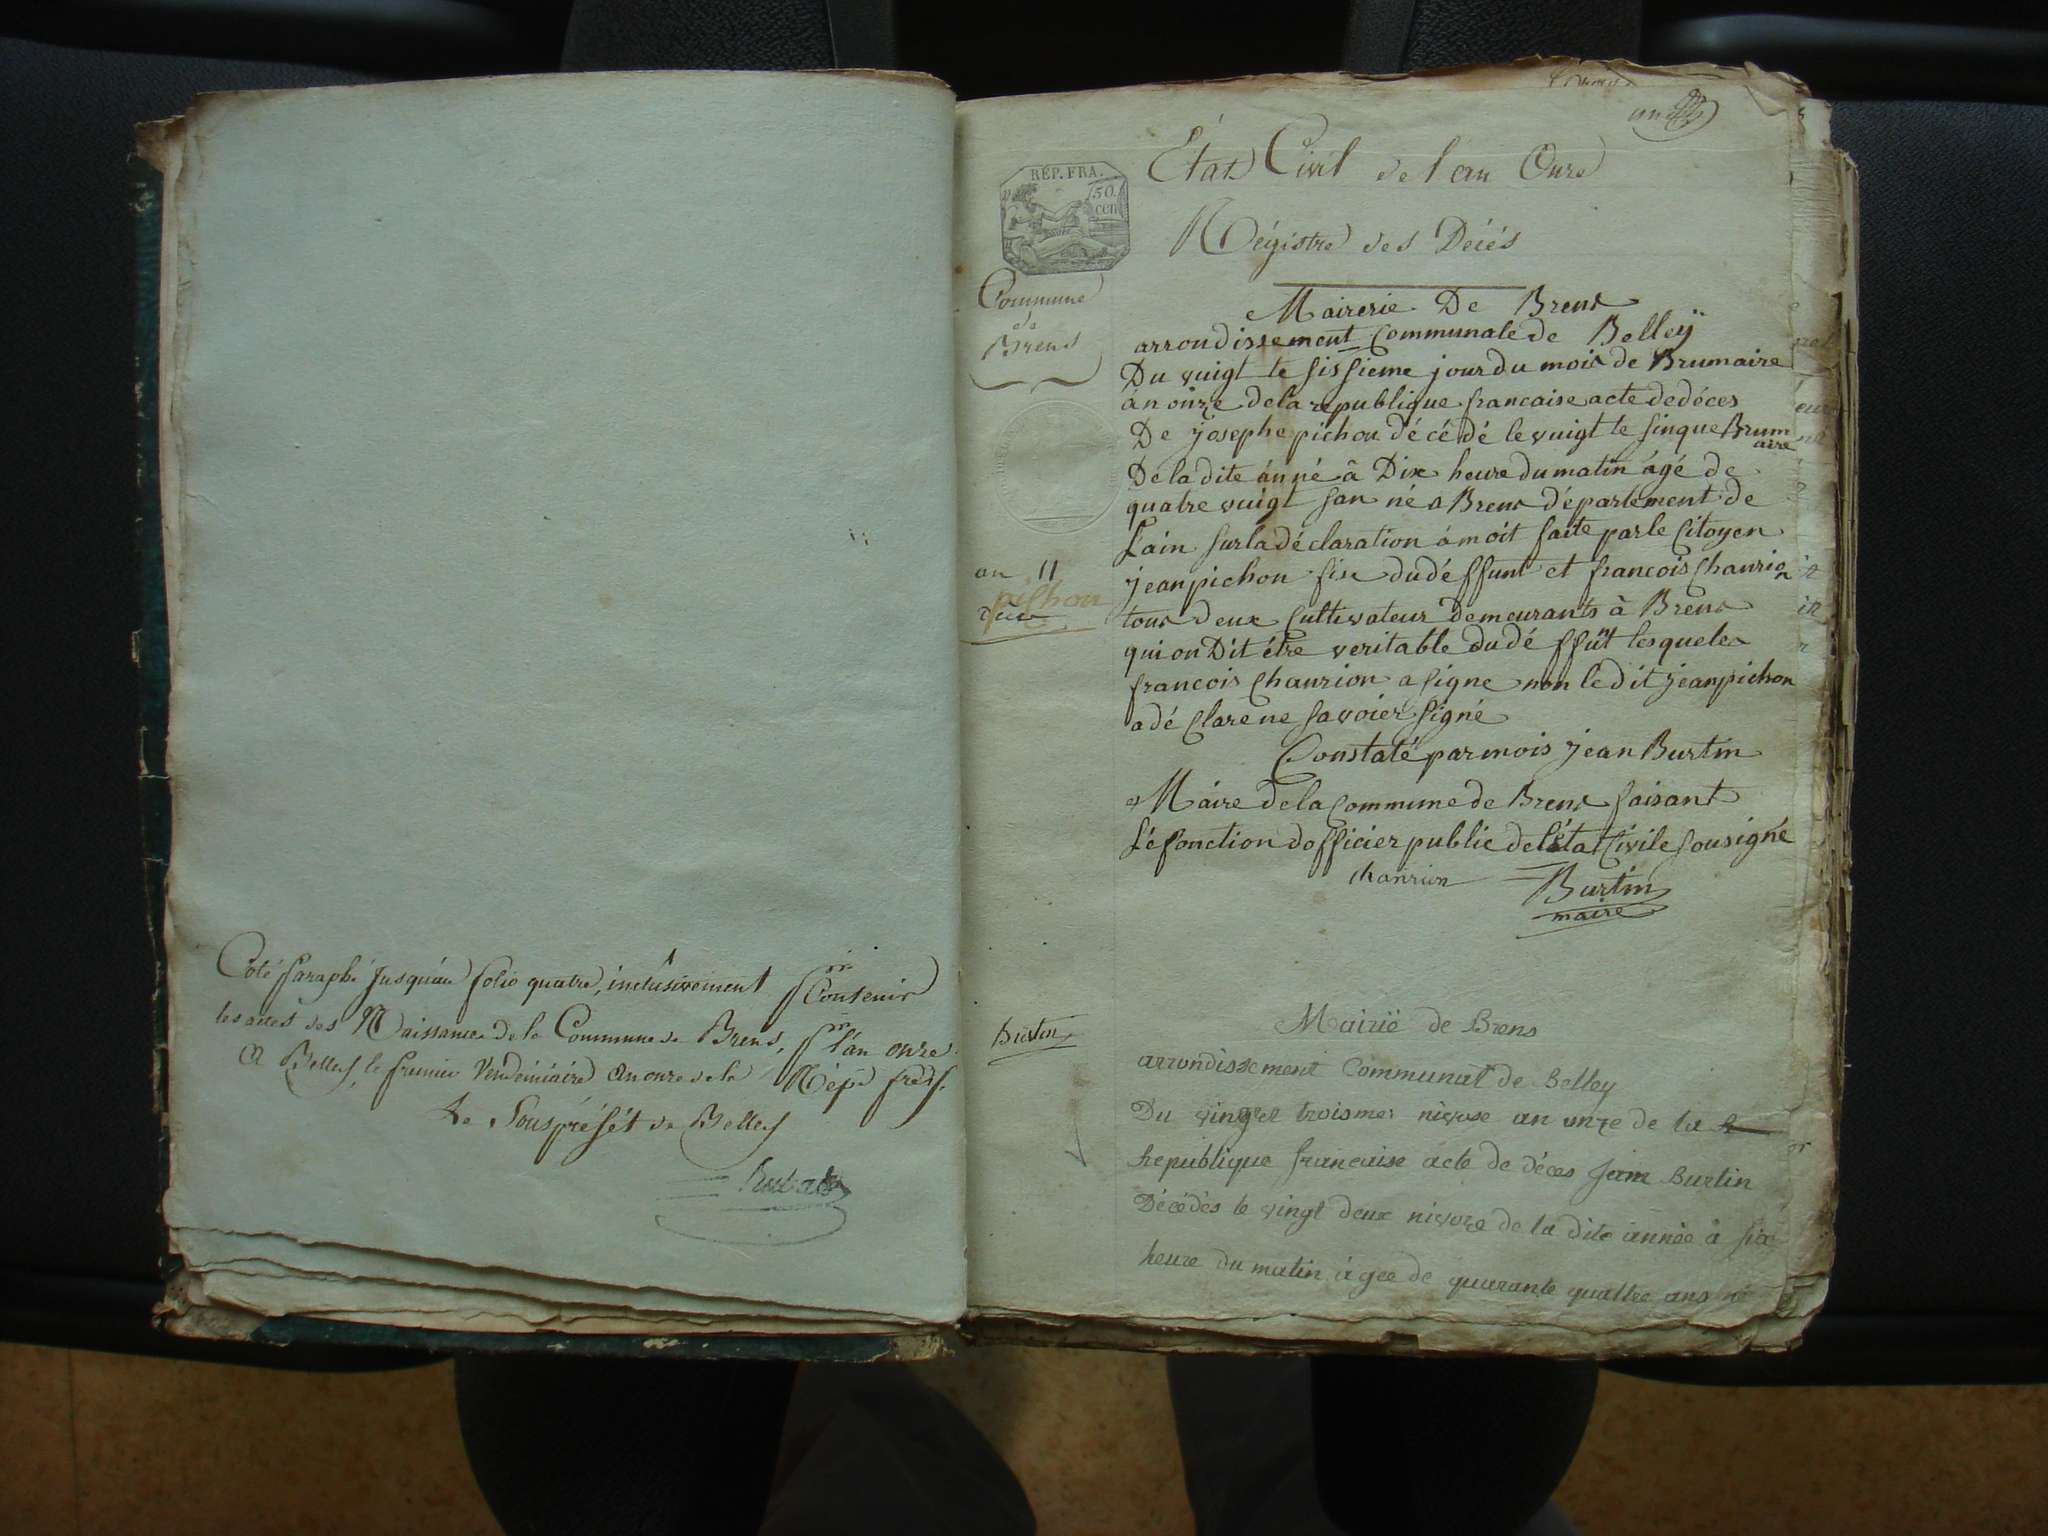 Coté Paraphé Jusqu'au folio quatre, inclusivement pr Contenir
les actes des Naissances de la Commune de Brens, pr l'an onze
A Belley, le premier Vendémiaire an onze de la Rép. frse.
Le Sous préfét de Belley
un
État Civil de l'an Onze
REP. FRA.
50
cen
Régistre des Décés
Commune
de
Brens
Mairerie De Brens
arrondissement Communale de Belleÿ
Du vuigt te sissieme jour du mois de Brumaire
an onze de la republique francaise acte de déces
De josephe pichon décédé le vuigt te sinque Brum
aire
De la dite anné à Dix heure du matin agé de
quatre vuigt san né a Brens département de
Lain sur la déclaration á moit faite par le Citoyen
an 11
jean pichon fix du déffunt et francois Chanrion
pichon
tous deux Cultivateur demeurants à Brens
qui on Dit étre veritable du déffünt lesqueles
francois Chanrion a signe non le dit jean pichon
a dé Clare ne savoier signé
Constaté par mois jean Burtin
Maire de la Commune de Brens faisant
Lé fonction dofficier public de léta Civile sousigné
chanrion Burtin
maire
Burtin
Mairië de Brens
arrondissement Communal de Belley
Du vingt troismes nivose an onze de la
Republique francaise acte de déces Jean Burtin
Décédés le vingt deux nivoze de la dite année à six
heure du matin àgee de quarante quattre ans né